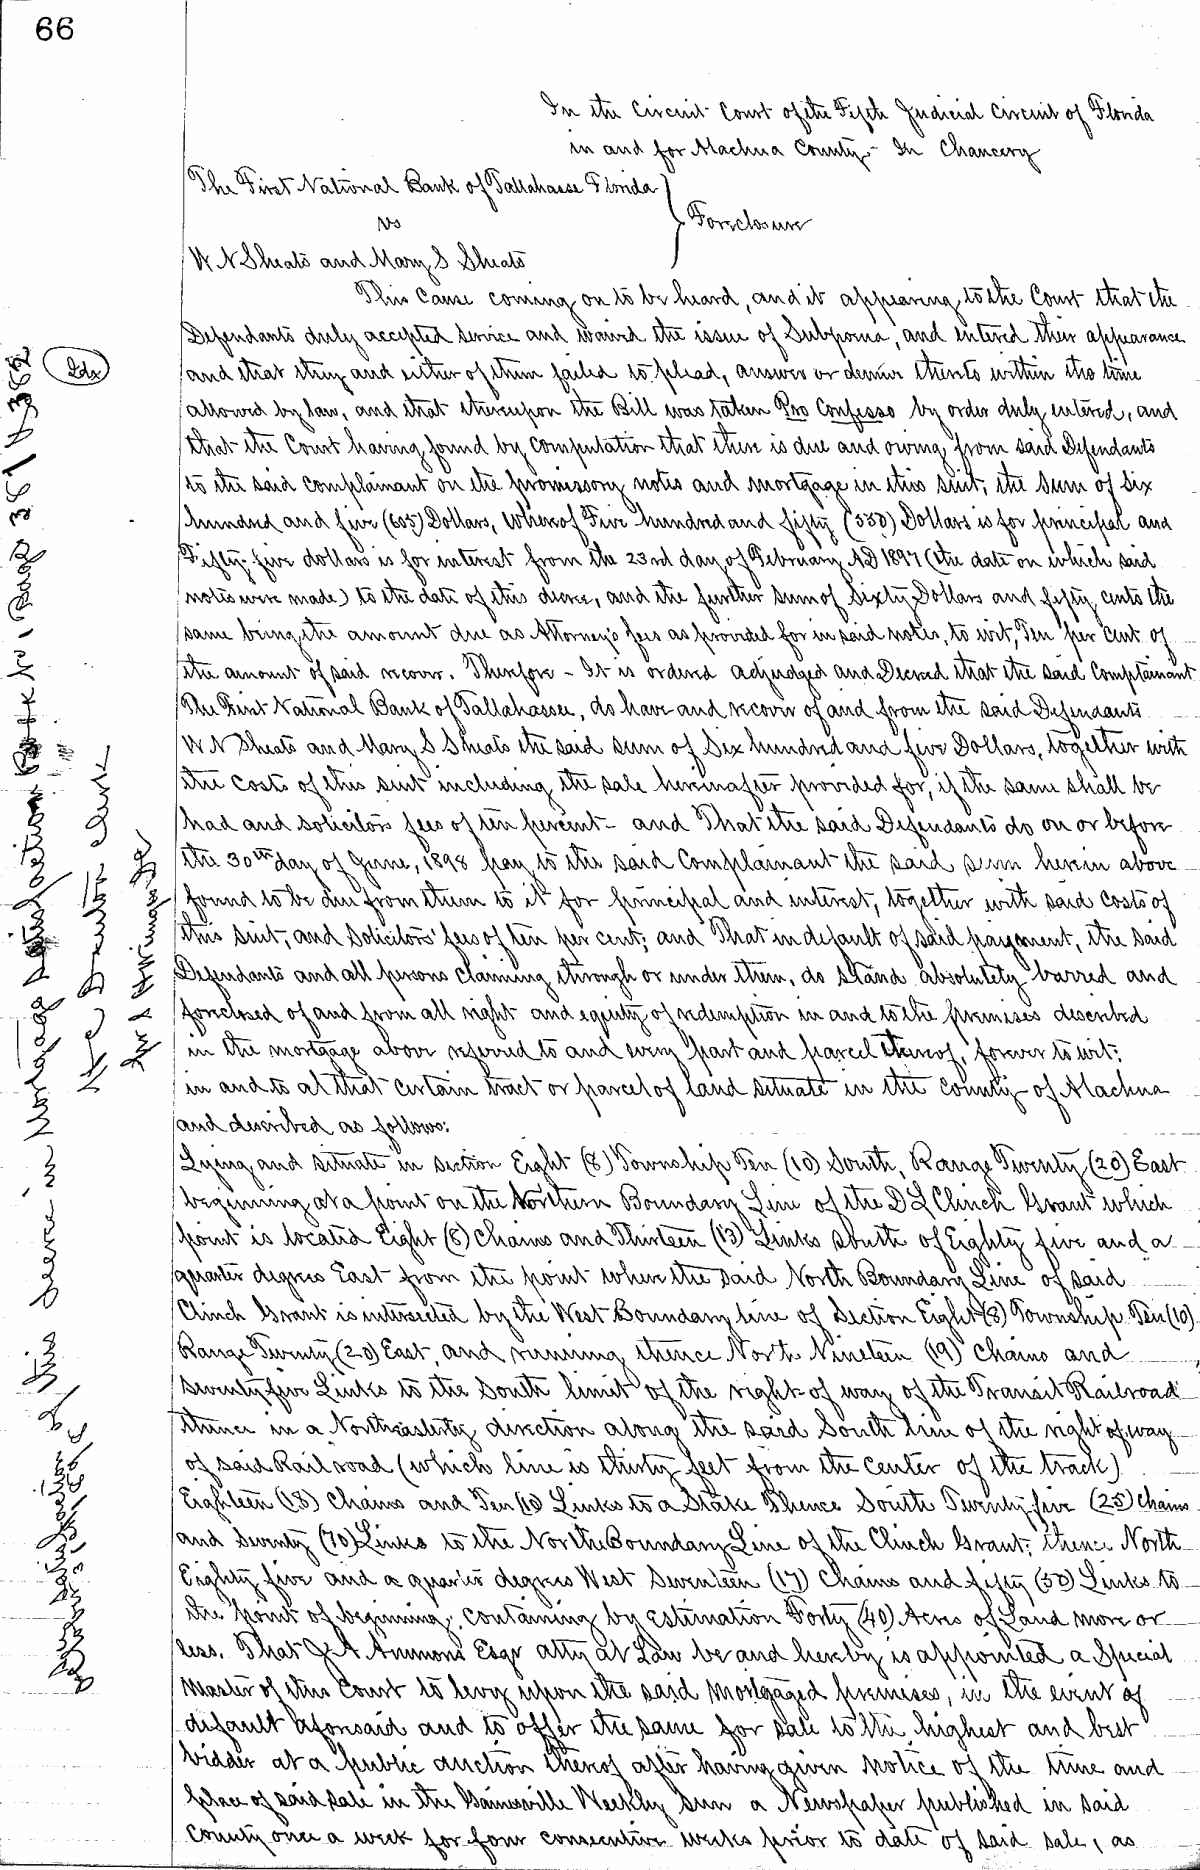 66
In the Circuit Court of the Fifth Judicial Circuit of Florida
in and for Alachua County - In Chancery
The First National Bank of Tallahasse Florida
vs
Foreclosure
W N Sheats and Mary S Sheats
This cause coming on to be heard, and it appearing to the Court that the
Defendants duly accepted service and waived the issue of Subpoena, and entered their appearance
and that they and either of them failed to plead, answer or demur thereto within the time
allowed by law, and that thereupon the Bill was taken Pro Confesso by order duly entered, and
that the Court having found by computation that there is due and owing from said Defendants
to the said Complainant on the promissory notes and mortgage in this suit, the sum of Six
hundred and five (605) Dollars, whereof Five hundred and fifty (550) Dollars is for principal and
Fifty-five dollars is for interest from the 23rd day of February AD 1897 (the date on which said
notes were made) to the date of this decree, and the further sum of Sixty Dollars and fifty cents the
same being the amount due as Attorney's fees as provided for in said notes, to wit, Ten per cent of
the amount of said recover. Therefore - It is ordered adjudged and Decreed that the said Complainant
The First National Bank of Tallahassee, do have and recover of and from the said Defendants
W N Sheats and Mary S Sheats the said sum of Six hundred and five Dollars, together with
the costs of this suit including the sale hereinafter provided for, if the same shall be
had and solicitors fees of ten percent - and That the said Defendants do on or before
the 30th day of June, 1898 pay to the said Complainant the said sum herein above
found to be due from them to it for principal and interest, together with said costs of
this suit, and Solicitors' fees of ten per cent; and That in default of said payment, the said
Defendants and all persons claiming through or under them, do stand absolutely barred and
foreclosed of and from all right and equity of redemption in and to the premises described
in the mortgage above referred to and every part and parcel thereof, forever to wit:
in and to al that certain tract or parcel of land situate in the county of Alachua
and described as follows:
Lying and situate in section Eight (8) Township Ten (10) South, Range Twenty (20) East
beginning at a point on the Northern Boundary Line of the D L Clinch Grant which
point is located Eight (8) Chains and Thirteen (13) Links South of Eighty five and a
quarter degrees East from the point where the said North Boundary Line of said
Clinch Grant is intersected by the West Boundary line of Section Eight (8) Township Ten (10)
Range Twenty (20) East, and running thence North Nineteen (19) Chains and
Seventy five Links to the South limit of the right of way of the Transit Railroad
thence in a Northeasterly direction along the said South line of the right of way
of said Railroad (which line is thirty feet from the center of the track)
Eighteen (18) Chains and Ten (10) Links to a Stake Thence South Twenty-five (25) Chains
and Seventy (70) Links to the North Boundary Line of the Clinch Grant; thence North
Eighty five and a quarter degrees West Seventeen (17) Chains and fifty (50) Links to
the point of beginning, containing by estimation Forty (40) Acres of Land more or
less. That J A Ammons Esqr atty at Law be and hereby is appointed a Special
Master of this Court to levy upon the said Mortgaged premises, in the event of
default aforesaid and to offer the same for sale to the highest and best
bidder at a public auction thereof after having given notice of the time and
place of said sale in the Gainesville Weekly Sun a Newspaper published in said
County once a week for four consecutive weeks prior to date of said sale, as
Idx
For satisfaction of this decree in Mortgage Satisfaction Book No 1 Page 361 & 362
H C Denton Clerk